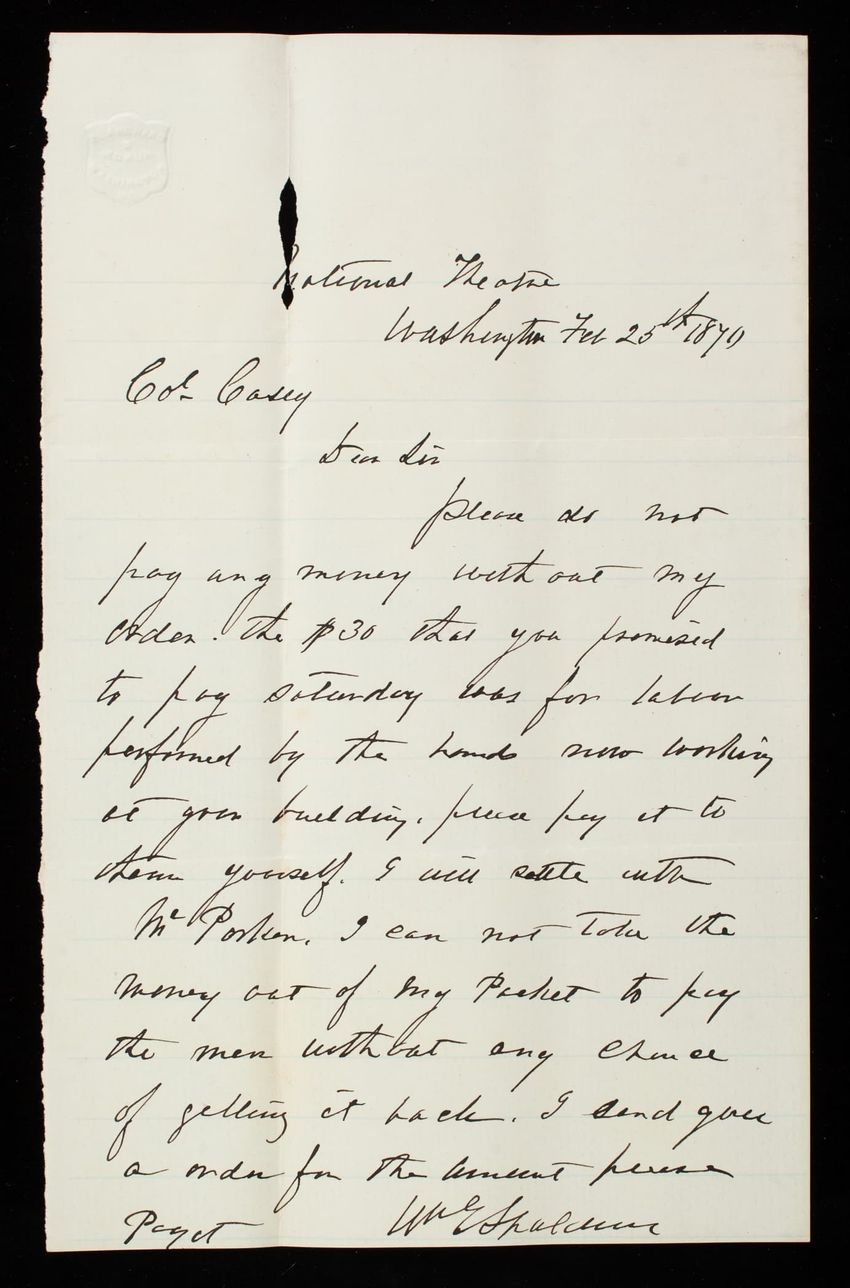 National Theatre
Washington Feb 25th 1870
Col Casey
Dear Sir
please do not
pay any money without my
order. the $30 that you promised
to pay saturday was for labour
performed by the hands now working
at your building. please pay it to
them yourself. I will settle with
Mr Parker. I can not take the
money out of my Pocket to pay
the men without any chance
of getting it back. I send you
a order for the amount please
Pay it Wm E Spalding